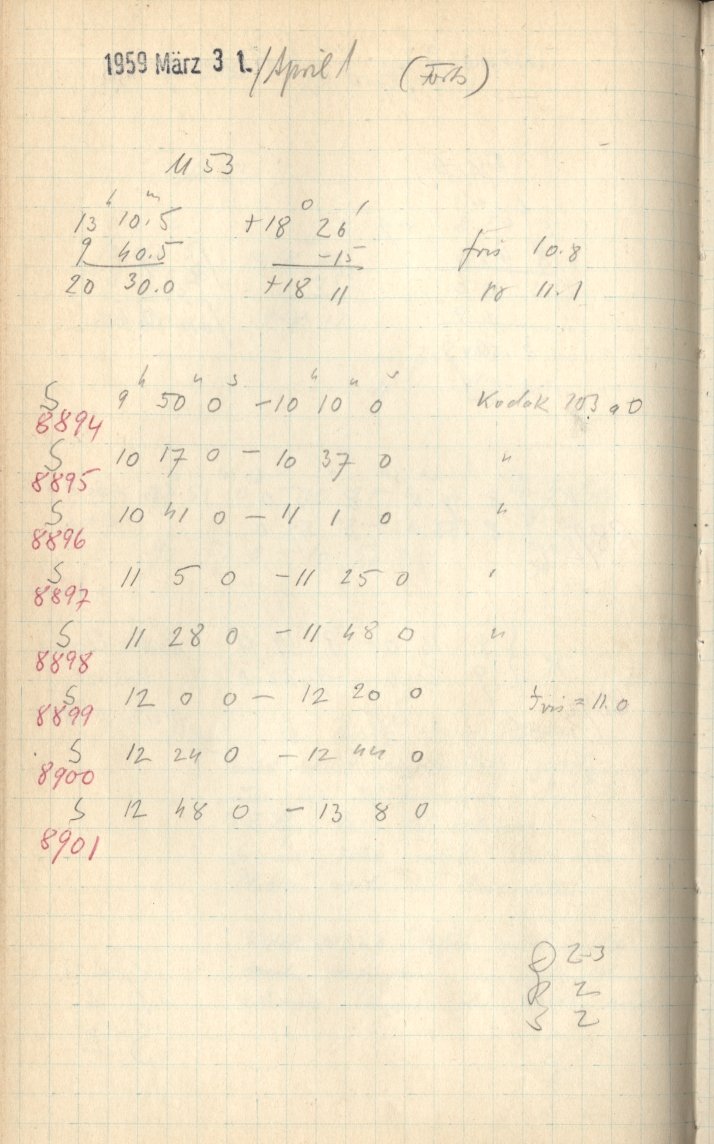 1959 März 31./April 1 (Forts)
M 53
13h 10m.5 +18° 26'
9 40.5 -15 10.8
20 30.0 +18 11 11.1
S 9h 50m 0s - 10h 10m 0s Kodak 103 a O
8894
S 10 17 0 - 10 37 0 "
8895
S 10 41 0 - 11 1 0 "
8896
S 11 5 0 - 11 25 0 "
8897
S 11 28 0 - 11 48 0 "
8898
S 12 0 0 - 12 20 0 = 11.0
8899
S 12 24 0 - 12 44 0
8900
S 12 48 0 - 13 8 0
8901
2-3
2
S 2